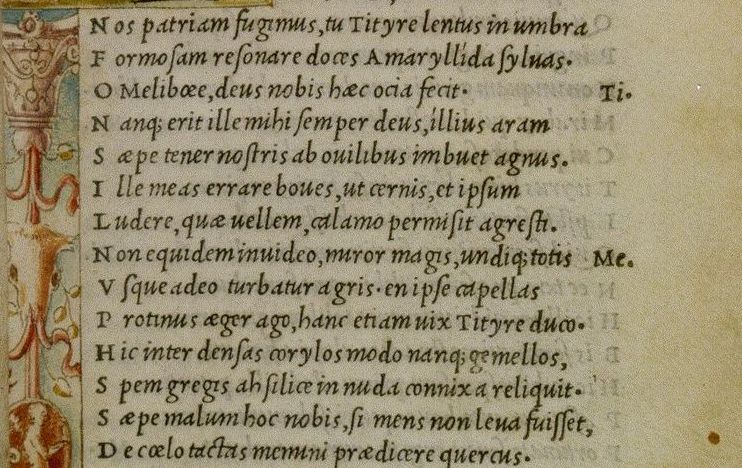 Nos patriam fugimus, tu Tityre lentus in umbra
Formosam resonare doces Amaryllida syluas.
O Melibœe, deus nobis hæc ocia fecit. Ti.
Nanq; erit ille mihi semper deus, illius aram
Sæpe tener nostris ab ouilibus imbuet agnus.
Ille meas errare boues, ut cernis, et ipsum
Ludere, quæ uellem, calamo permisit agresti.
Non equidem inuideo, miror magis, undiq; totis Me.
Vsque adeo turbatur agris. en ipse capellas
Protinus æger ago, hanc etiam uix Tityre duco.
Hic inter densas corylos modo nanq; gemellos,
Spem gregis ah silice in nuda connixa reliquit.
Sæpe malum hoc nobis, si mens non leua fuisset,
De cœlo tactas memini prædicere quercus.